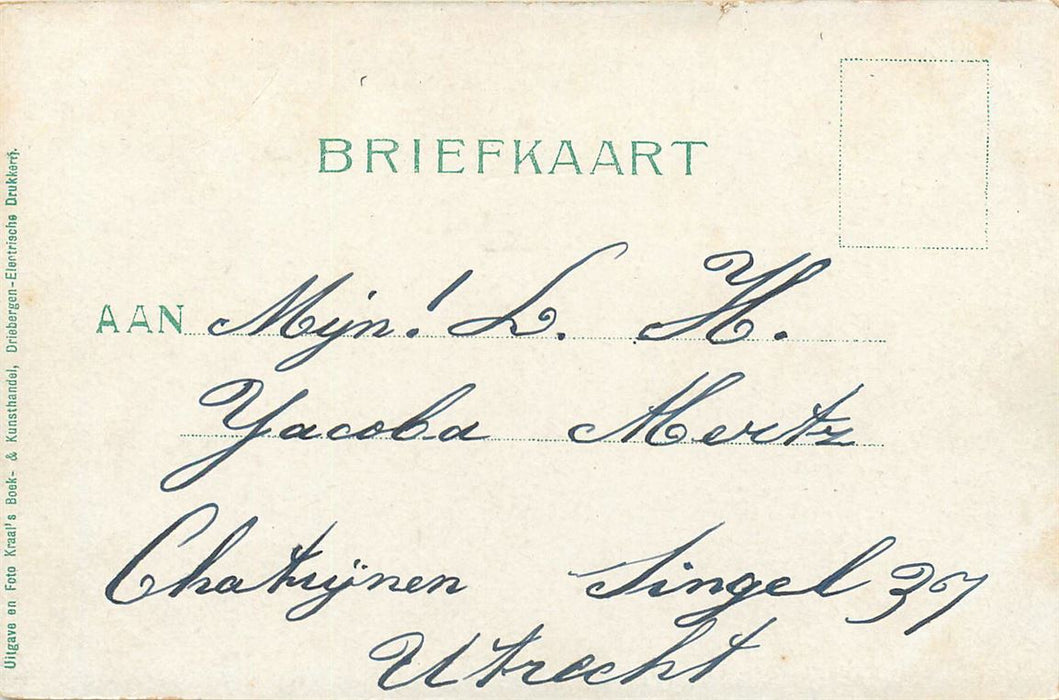 BRIEFKAART
AAN Mijn! L. H.
Yacoba Mertz
Chatrijnen Singel 37
Utrecht
Uitgave en Foto Kraal's Boek- & Kunsthandel, Driebergen-Electrische Drukkerij.